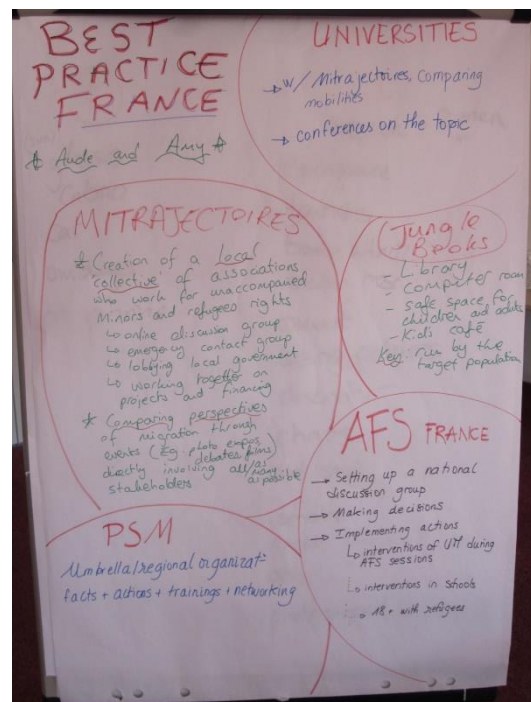 BEST
PRACTICE
FRANCE
* Aude and Amy *
UNIVERSITIES
→ w/ Mitrajectoires, comparing
mobilities
→ conferences on the topic
MITRAJECTOIRES
* Creation of a local
'collective' of associations
who work for unaccompanied
Minors and refugees rights
↳ online discussion group
↳ emergency contact group
↳ lobbying local government
↳ working together on
projects and financing
* Comparing perspectives
of migration through
events (Eg photo expos,
debates, films)
directly involving all/as
many
as possible
stakeholders
Jungle
Books
- Library
- Computer room
- Safe space for
children and adults
- Kids café
Key: run by the
target population
AFS FRANCE
→ Setting up a national
discussion group
→ Making decisions
→ Implementing actions
↳ interventions of UM during
AFS sessions
↳ interventions in schools
↳ 18+ with refugees
PSM
Umbrella/regional organizat°
facts + actions + trainings + networking